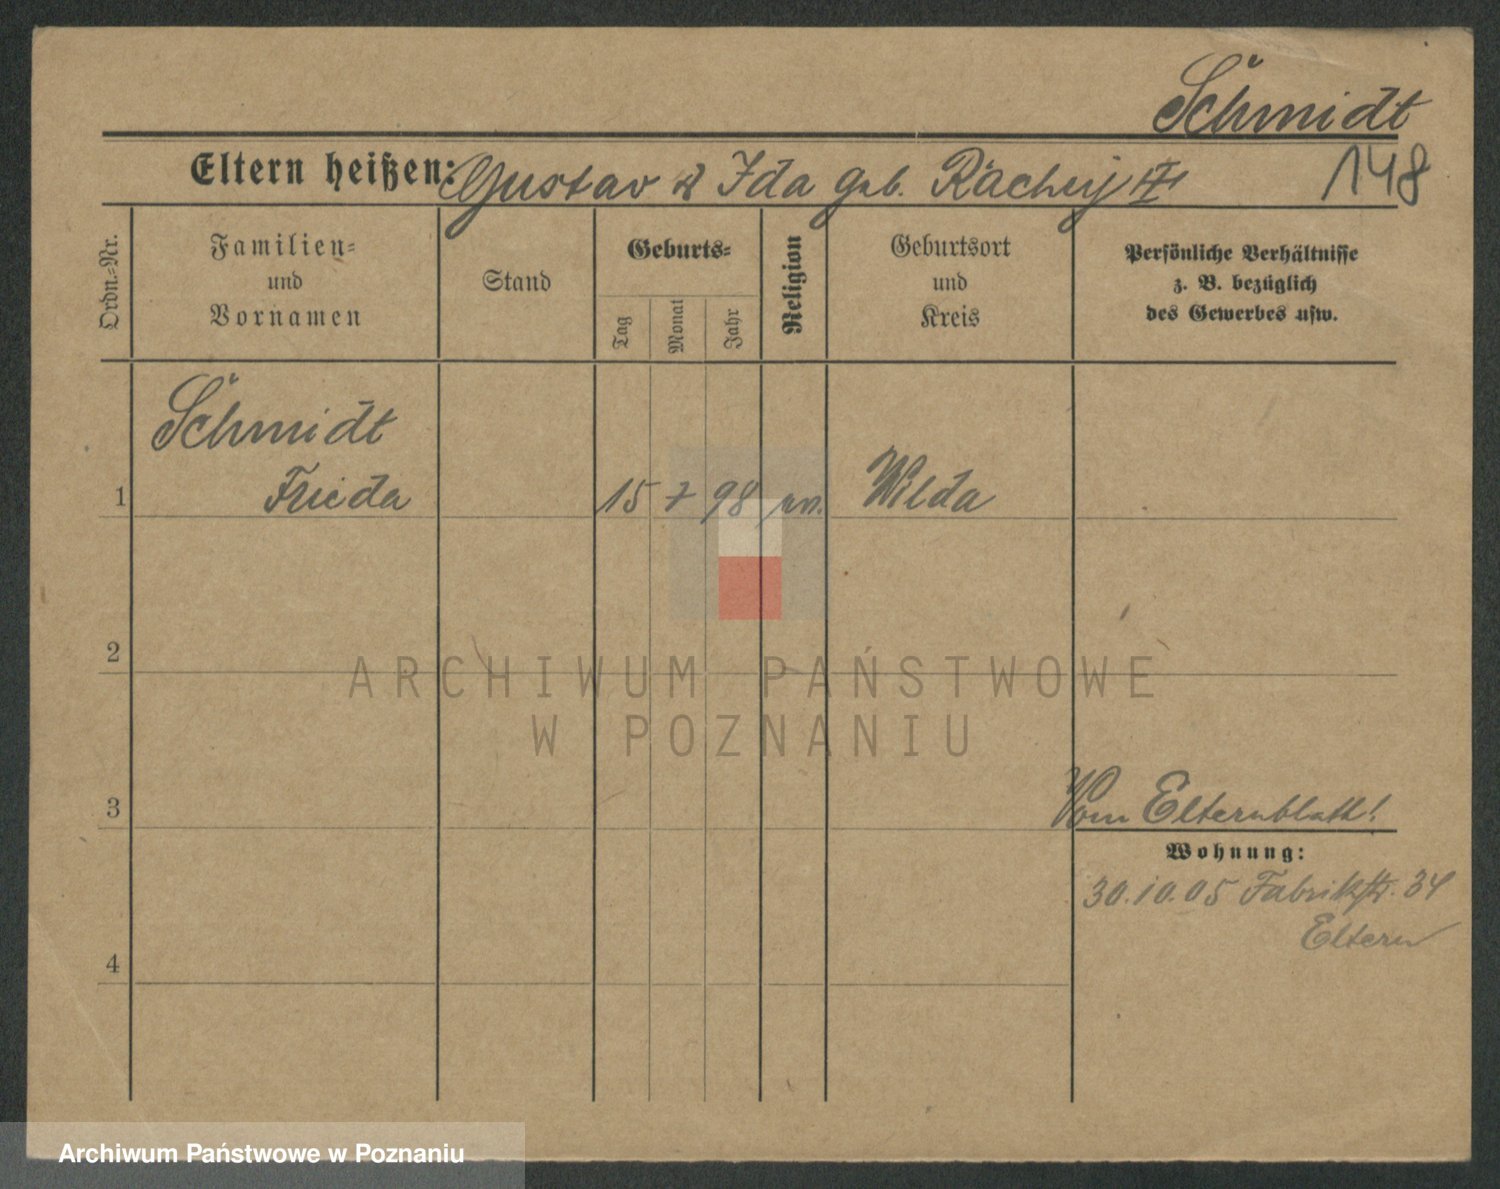 Schmidt
Eltern heißen: Gustav & Ida geb.
148
Ordn.-Nr.
Familien-
und
Vornamen
Stand
Geburts-
Tag
Monat
Jahr
Religion
Geburtsort
und
Kreis
Persönliche Verhältnisse
z. B. bezüglich
des Gewerbes usw.
Schmidt
1 Frieda 15 7 98 Wilda
2
ARCHIWUM PAŃSTWOWE
W POZNANIU
3
Vom Elternblatt!
Wohnung:
30.10.05 Fabrikstr. 34
Eltern
4
Archiwum Państwowe w Poznaniu